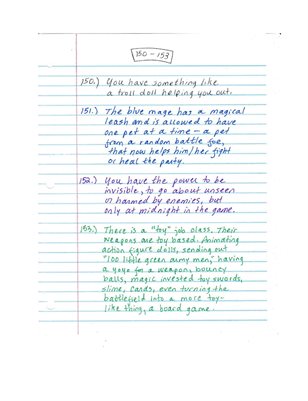 150 - 153
150.) You have something like
a troll doll helping you out.
151.) The blue mage has a magical
leash and is allowed to have
one pet at a time - a pet
from a random battle foe,
that now helps him/her fight
or heal the party.
152.) You have the power to be
invisible, to go about unseen
or harmed by enemies, but
only at midnight in the game.
153.) There is a "toy" job class. Their
weapons are toy based. Animating
action figure dolls, sending out
"100 little green army men," having
a yoyo for a weapon, bouncy
balls, magic invested toy swords,
slime, cards, even turning the
battlefield into a more toy-
like thing, a board game.